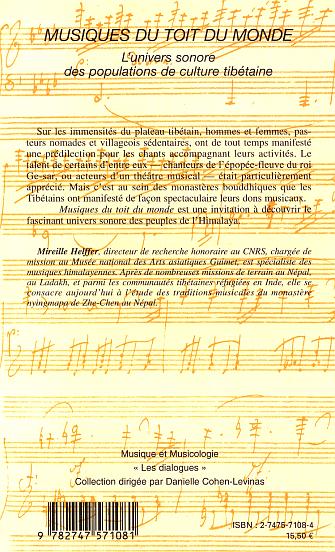 MUSIQUES DU TOIT DU MONDE
L'univers sonore
des populations de culture tibétaine
Sur les immensités du plateau tibétain, hommes et femmes, pas-
teurs nomades et villageois sédentaires, ont de tout temps manifesté
une prédilection pour les chants accompagnant leurs activités. Le
talent de certains d'entre eux — chanteurs de l'épopée-fleuve du roi
Ge-sar, ou acteurs d'un théâtre musical — était particulièrement
apprécié. Mais c'est au sein des monastères bouddhiques que les
Tibétains ont manifesté de façon spectaculaire leurs dons musicaux.
Musiques du toit du monde est une invitation à découvrir le
fascinant univers sonore des peuples de l'Himalaya.
Mireille Helffer, directeur de recherche honoraire au CNRS, chargée de
mission au Musée national des Arts asiatiques Guimet, est spécialiste des
musiques himalayennes. Après de nombreuses missions de terrain au Népal,
au Ladakh, et parmi les communautés tibétaines réfugiées en Inde, elle se
consacre aujourd'hui à l'étude des traditions musicales du monastère
nyingmapa de Zhe-Chen au Népal.
Musique et Musicologie
« Les dialogues »
Collection dirigée par Danielle Cohen-Levinas
ISBN : 2-7475-7108-4
15,50 €
9 782747 571081